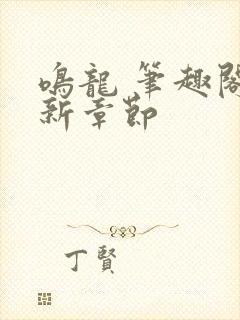 鳴龍 筆趣閣
新章節
丁賢